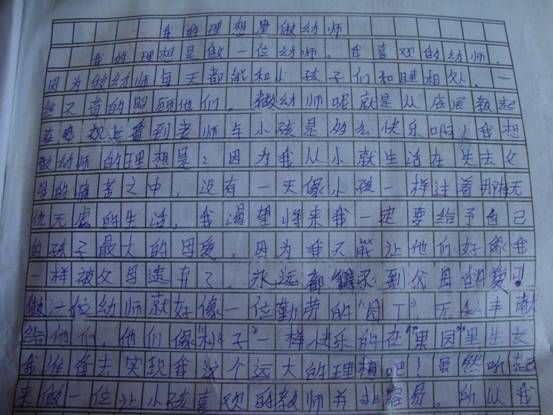 我的理想是做幼师
我的理想是做一位幼师。我喜欢的幼师,
因为做幼师每天都能和小孩子们和睦相处。一
些又苦的照顾他们。做幼师呢就是从底层教起
在电视上看到老师与小孩是多么快乐啊!我想
做幼师的理想是:因为我从小就生活在失去父
母的痛苦之中,没有一天像小孩一样过着那无
忧无虑的生活,我渴望将来我一定要给予自己
的孩子最大的关爱,因为我不能让他们好像我
一样被父母遗弃了 永远都得不到父母的爱!
做一位幼师就好像一位勤劳的"园丁"无私奉献
给他们,他们像"李子"一样快乐的在"果园"里生长
我准备去实现我这个远大的理想吧!虽然听起
来做一位让小孩喜欢的教师并非容易,所以我